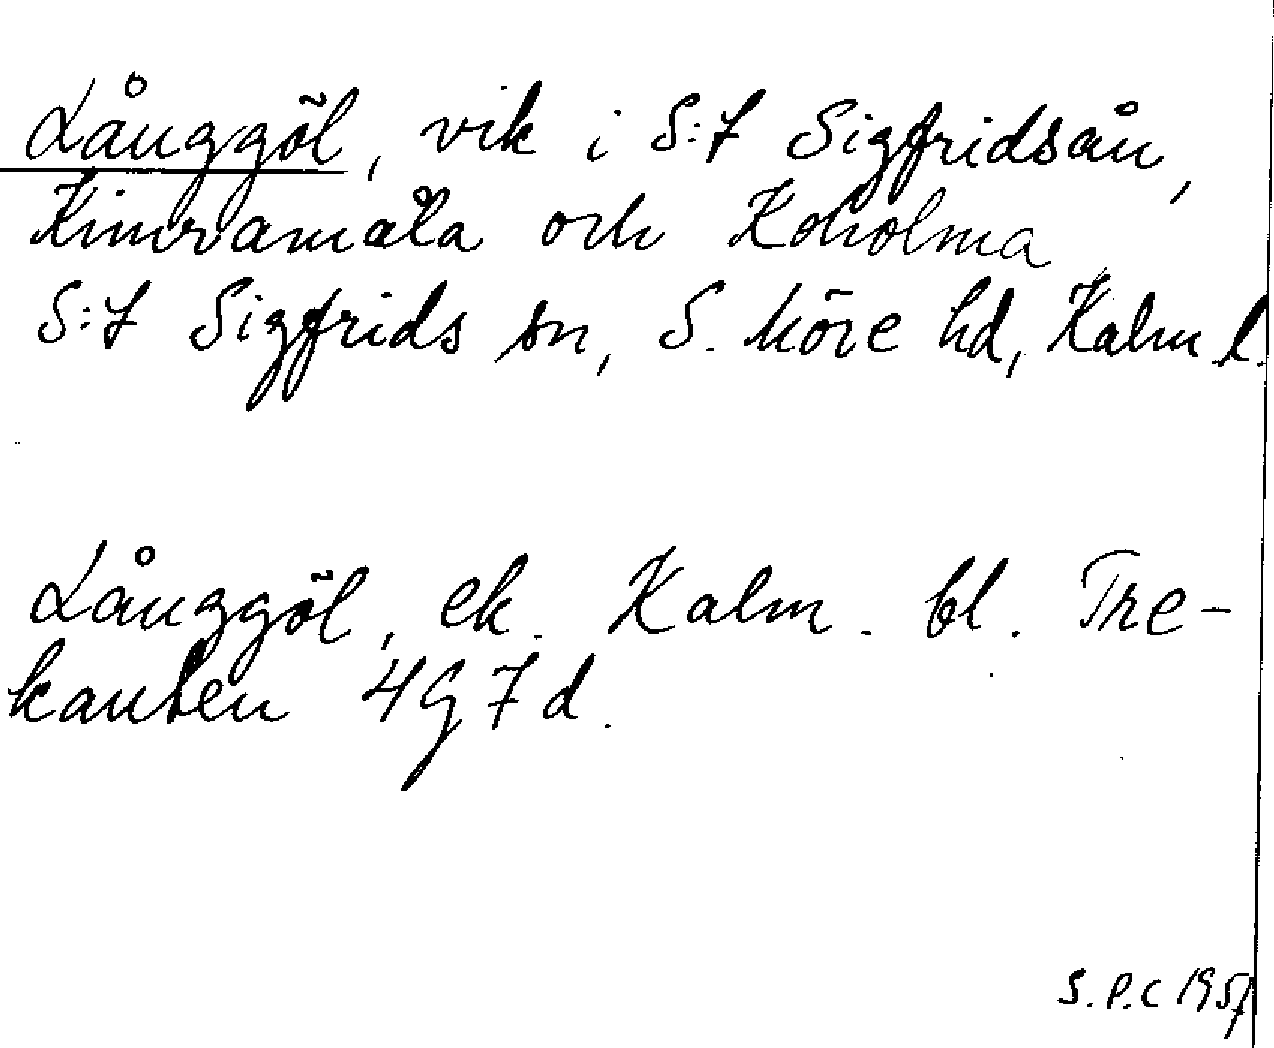 Långgöl, vik i S:t Sigfridsån,
Kimramåla och Koholma
S:t Sigfrids sn, S. Möre hd, Kalm l.
Långgöl, ek. Kalm. bl. Tre-
kanten 4G 7d.
S.P.C 1957